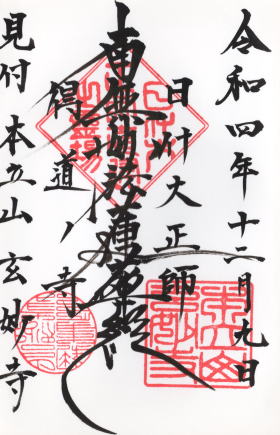 令和四年十二月九日
日什大正師
南無妙法蓮華経
得道ノ寺
見付 本立山 玄妙寺